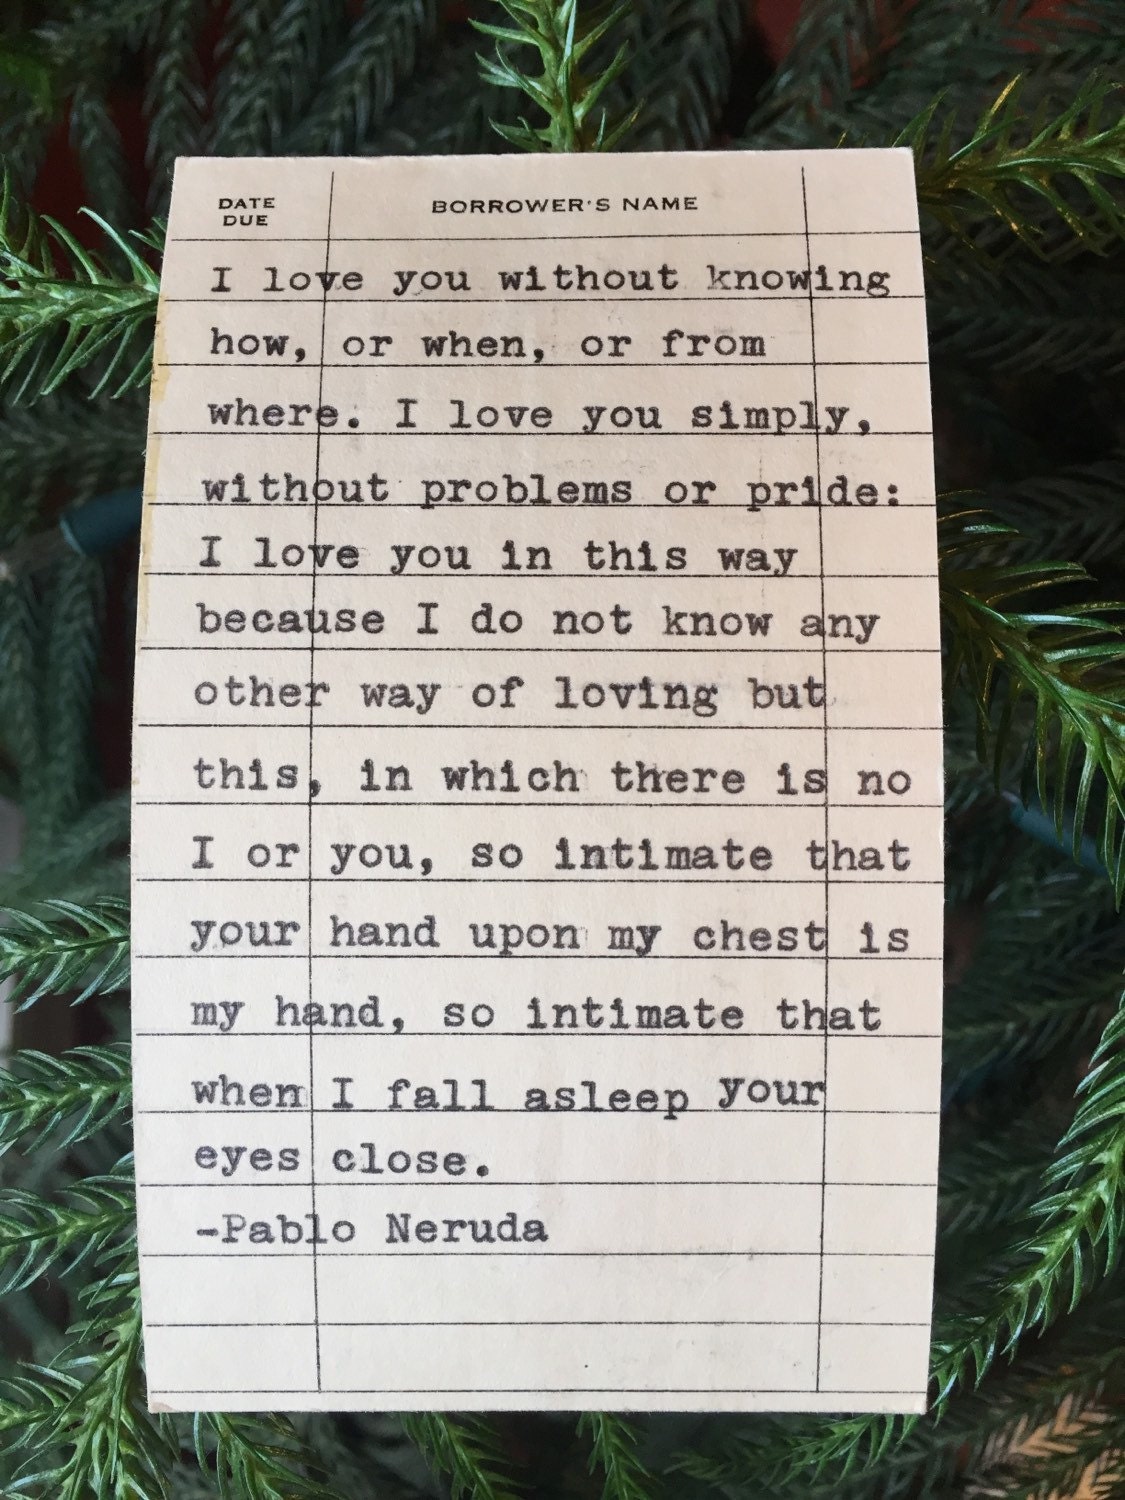 DATE DUE
BORROWER'S NAME
I love you without knowing
how, or when, or from
where. I love you simply,
without problems or pride:
I love you in this way
because I do not know any
other way of loving but
this, in which there is no
I or you, so intimate that
your hand upon my chest is
my hand, so intimate that
when I fall asleep your
eyes close.
-Pablo Neruda